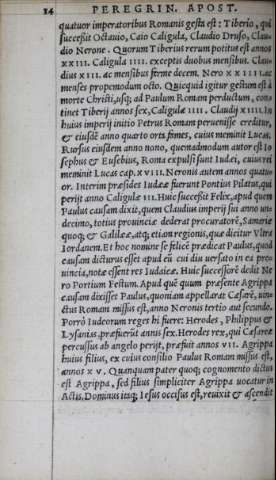 14 PEREGRIN. APOST.
quatuor imperatoribus Romanis gesta est: Tiberio, qui
successit Octauio, Caio Caligula, Claudio Druso, Clau-
dio Nerone. Quorum Tiberius rerum potitus est annos
XXIII. Caligula IIII. exceptis duobus mensibus. Clau-
dius XIII. ac mensibus ferme decem. Nero XXIIII. ac
menses propemodum octo. Quicquid igitur gestum est à
morte Christi, usq; ad Paulum Romam perductum, con-
tinet Tiberij annos sex, Caligulæ IIII. Claudij XIIII. In
huius imperij initio Petrus Romam peruenisse creditur,
& eiusdē anno quarto orta fames, cuius meminit Lucas.
Rursus eiusdem anno nono, quemadmodum autor est Io
sephus & Eusebius, Roma expulsi sunt Iudæi, cuius rei
meminit Lucas cap. XVIII. Neronis autem annos quatu-
or. Interim præsides Iudææ fuerunt Pontius Pilatus, qui
perijt anno Caligulæ III. Huic successit Felix, apud quem
Paulus causam dixit, quem Claudius imperij sui anno un-
decimo, totius prouinciæ dederat procuratorē, Samariæ
quoq; & Galilææ, atq; etiam regionis, quæ dicitur Vltra
Iordanem. Et hoc nomine se felicē prædicat Paulus, quod
causam dicturus esset apud eū cui diu uersato in ea pro-
uincia, notæ essent res Iudaicæ. Huic successorē dedit Ne
ro Portium Festum. Apud quē quum præsente Agrippa
causam dixisset Paulus, quoniam appellarat Cæsarē, uin-
ctus Romam missus est, anno Neronis tertio aut secundo.
Porrò Iudæorum reges hi fuere: Herodes, Philippus &
Lysanias, præfuerūt annis sex. Herodes rex, qui Cæsareæ
percussus ab angelo perijt, præfuit annos VII. Agrippa
huius filius, ex cuius consilio Paulus Romam missus est,
annos XV. Quanquam pater quoq; cognomento dictus
est Agrippa, sed filius simpliciter Agrippa uocatur in
Actis. Dominus itaq; Iesus occisus est, reuixit & ascendit